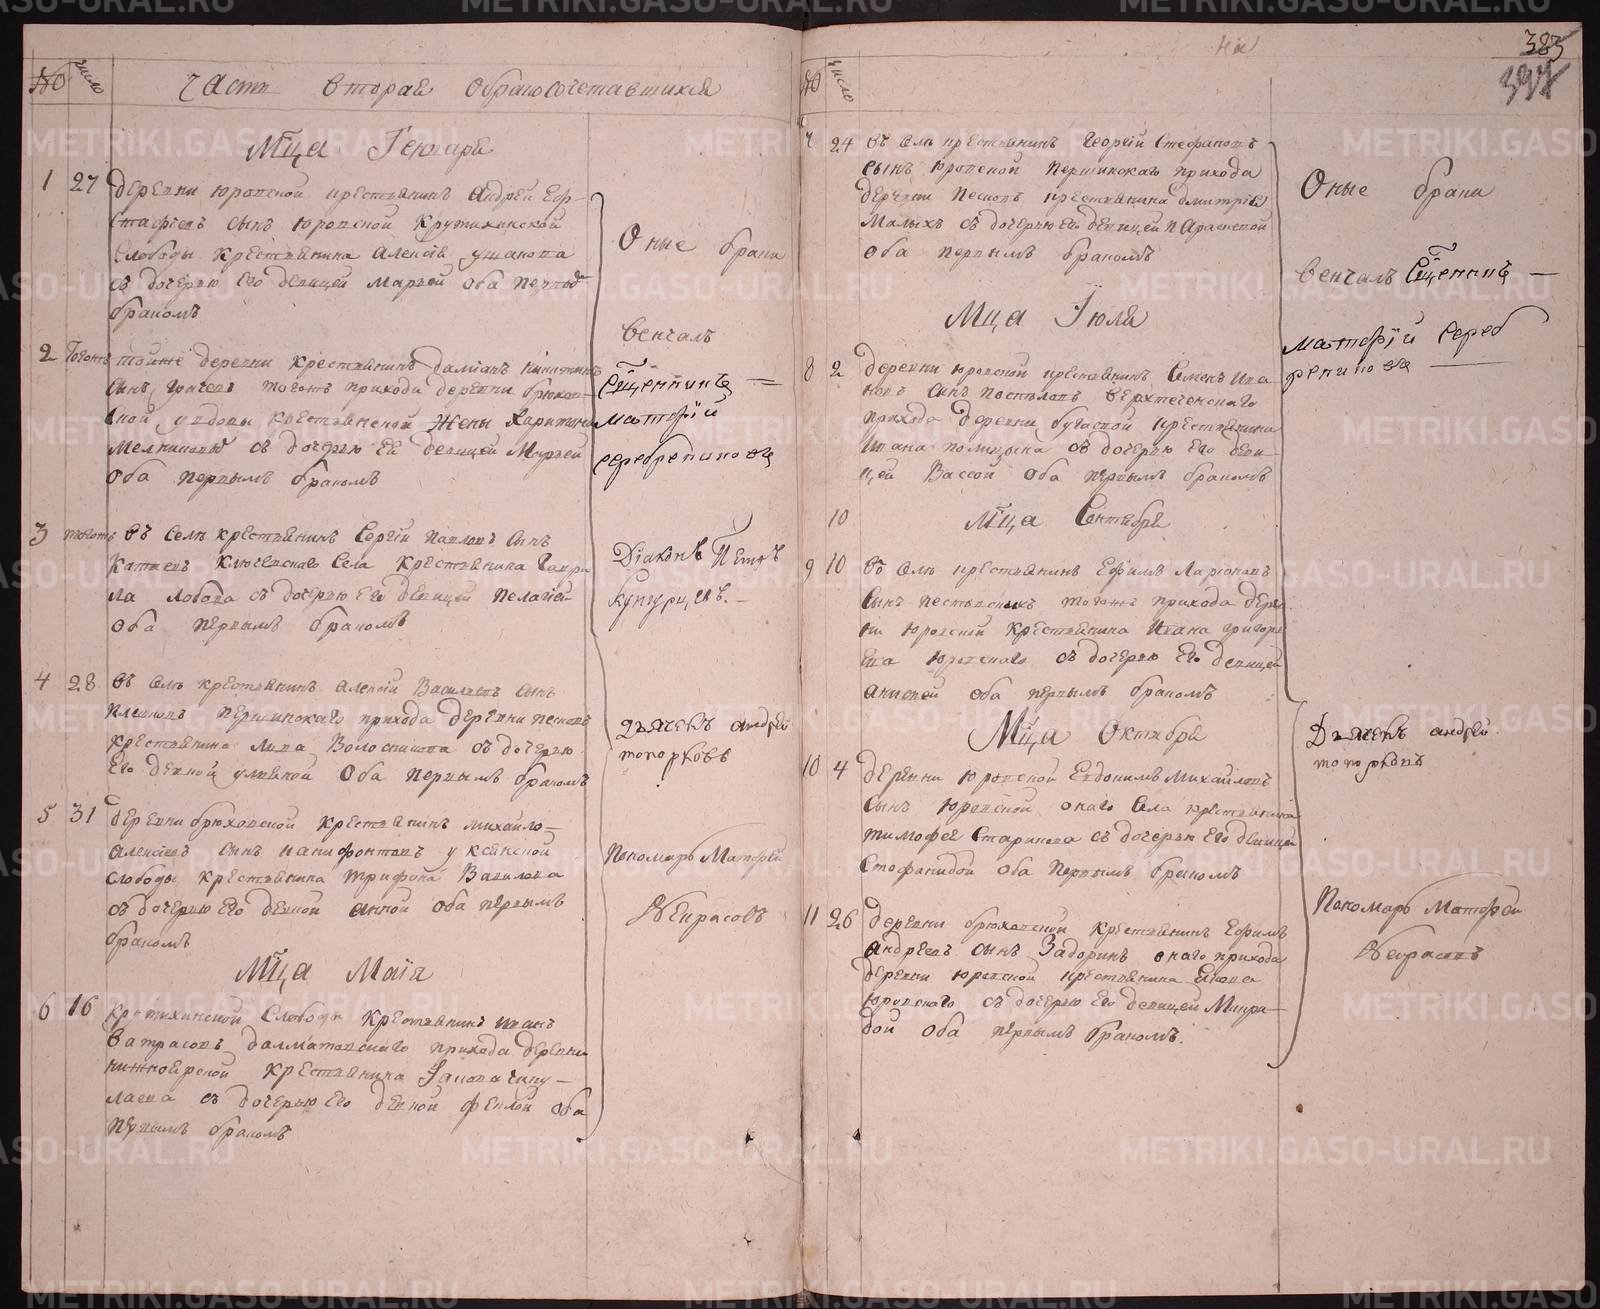 № число Часть вторая о бракосочетавшихся
Мца Генваря
1 27 деревни Юровской крестьянинъ Андрей Ев-
стафіевъ сынъ Юровской Крутихинской
слободы крестьянина Алексія Ушакова
съ дочерью его девицей Марѳей оба первымъ
бракомъ
2 тогожъ тойже деревни крестьянинъ Даміанъ Никитинъ
сынъ тогожъ прихода деревни Брюхов-
ской у вдовы крестьянской жены Харитины
Мелниковой съ дочерью её девицей Марѳей
оба первымъ бракомъ
3 тогожъ въ селе крестьянинъ Сергій Павловъ сынъ
Ключевскаго села крестьянина Гаври-
ла Лобова съ дочерью его девицей Пелагіей
оба первымъ бракомъ
4 28 въ селе крестьянинъ Алексій Васильевъ сынъ
Першинскаго прихода деревни Песковъ
крестьянина съ дочерью
его девкой Улияной оба первымъ бракомъ
5 31 деревни Брюховской крестьянинъ Михайло
Алексіевъ сынъ Уксянской
слободы крестьянина Трифона Вавилова
съ дочерью его девкой Анной оба первымъ
бракомъ
Мца Маія
6 16 Крутихинской слободы крестьянинъ Иванъ
Ватрасовъ Далматовскаго прихода деревни
Нижноярской крестьянина Іакова Чипу-
лаева съ дочерью его девкой Феклой оба
первымъ бракомъ
Оные браки
венчалъ
Сщенникъ
Матфій
Серебрениковъ
Діаконъ Петръ
Кунгурцевъ.
Дьячекъ Андрей
Топорковъ
Пономарь Матфей
Некрасовъ
383
397
№ число
7 24 въ селе крестьянинъ Георгій Стефановъ
сынъ Юровской Першинскаго прихода
деревни Песковъ крестьянина Дмитрія
Малыхъ съ дочерью его девицей Параскевой
оба первымъ бракомъ
Мца Іюля
8 2 деревни Юровской крестьянинъ Семенъ Ива-
новъ сынъ Постыловъ Верхтеченскаго
прихода деревни Бугаевой крестьянина
Ивана съ дочерью его деви-
цей Вассой оба первымъ бракомъ
10 Мца Сентября
9 10 въ селе крестьянинъ Ефимъ Ларіоновъ
сынъ тогожъ прихода дерев-
ни Юровской крестьянина Ивана Григорь-
ева Юровскаго съ дочерью его девицей
Анисіей оба первымъ бракомъ
Мца Октября
10 4 деревни Юровской Евдокимъ Михайловъ
сынъ Юровской онаго села крестьянина
Тимофея Старикова съ дочерью его девицей
Стефанидой оба первымъ бракомъ
11 26 деревни Брюховской крестьянинъ Ефимъ
Андреевъ сынъ Задоринъ онаго прихода
деревни Юровской крестьянина
Юровскаго съ дочерью его девицей Маври-
ной оба первымъ бракомъ.
Оные браки
венчалъ Сщенникъ
Матфій Сереб
рениковъ
Дьячекъ Андрей
Топорковъ
Пономарь Матфей
Некрасовъ
METRIKI.GASO-URAL.RU